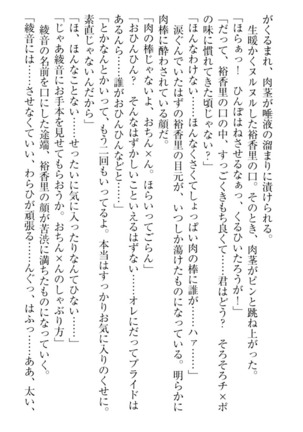 がくるまれ、肉茎が唾液の溜まりに漬けられる。
生暖かくヌルヌルした裕香里の口の中。そのとき、肉茎がビンと跳ね上がった。
「ほらぁっ！　ひんぽはねさせるなぁっ、くるひいたろうが！」
「だって、裕香里の口の中、すっごくきもち良くて……君はどう？　そろそろチ×ポ
の味に慣れてきた頃じゃない？」
「ほんなわけない……ほんなくさくてしょっぱい肉の棒に誰が……ハァ……」
涙ぐんでいたはずの裕香里の目元が、いつしか蕩けたものになっている。明らかに
肉棒に酔わされている顔だ。
「肉の棒じゃないよ、おちん×ん。ほらいってごらん」
「おひんひん？　そんなはずかしいこといえるはずない……オレにだってプライドは
あるんら……誰がおひんひんなどと……」
「とかなんとかいって、もう二回もいってるよ。本当はすっかりお気に入りのくせに。
素直じゃないんだから」
「ほ、ほんなことない……せったいに気に入ったりなんてひない……」
「じゃあ綾音にお手本を見せてもらおうか。おちん×んのしゃぶり方」
綾音の名前を口にした途端、裕香里の顔が苦渋に満ちたものになっていく。
「綾音には……させなくていい、わらひが頑張る……んぐっ、はふっ……ああ、太い、